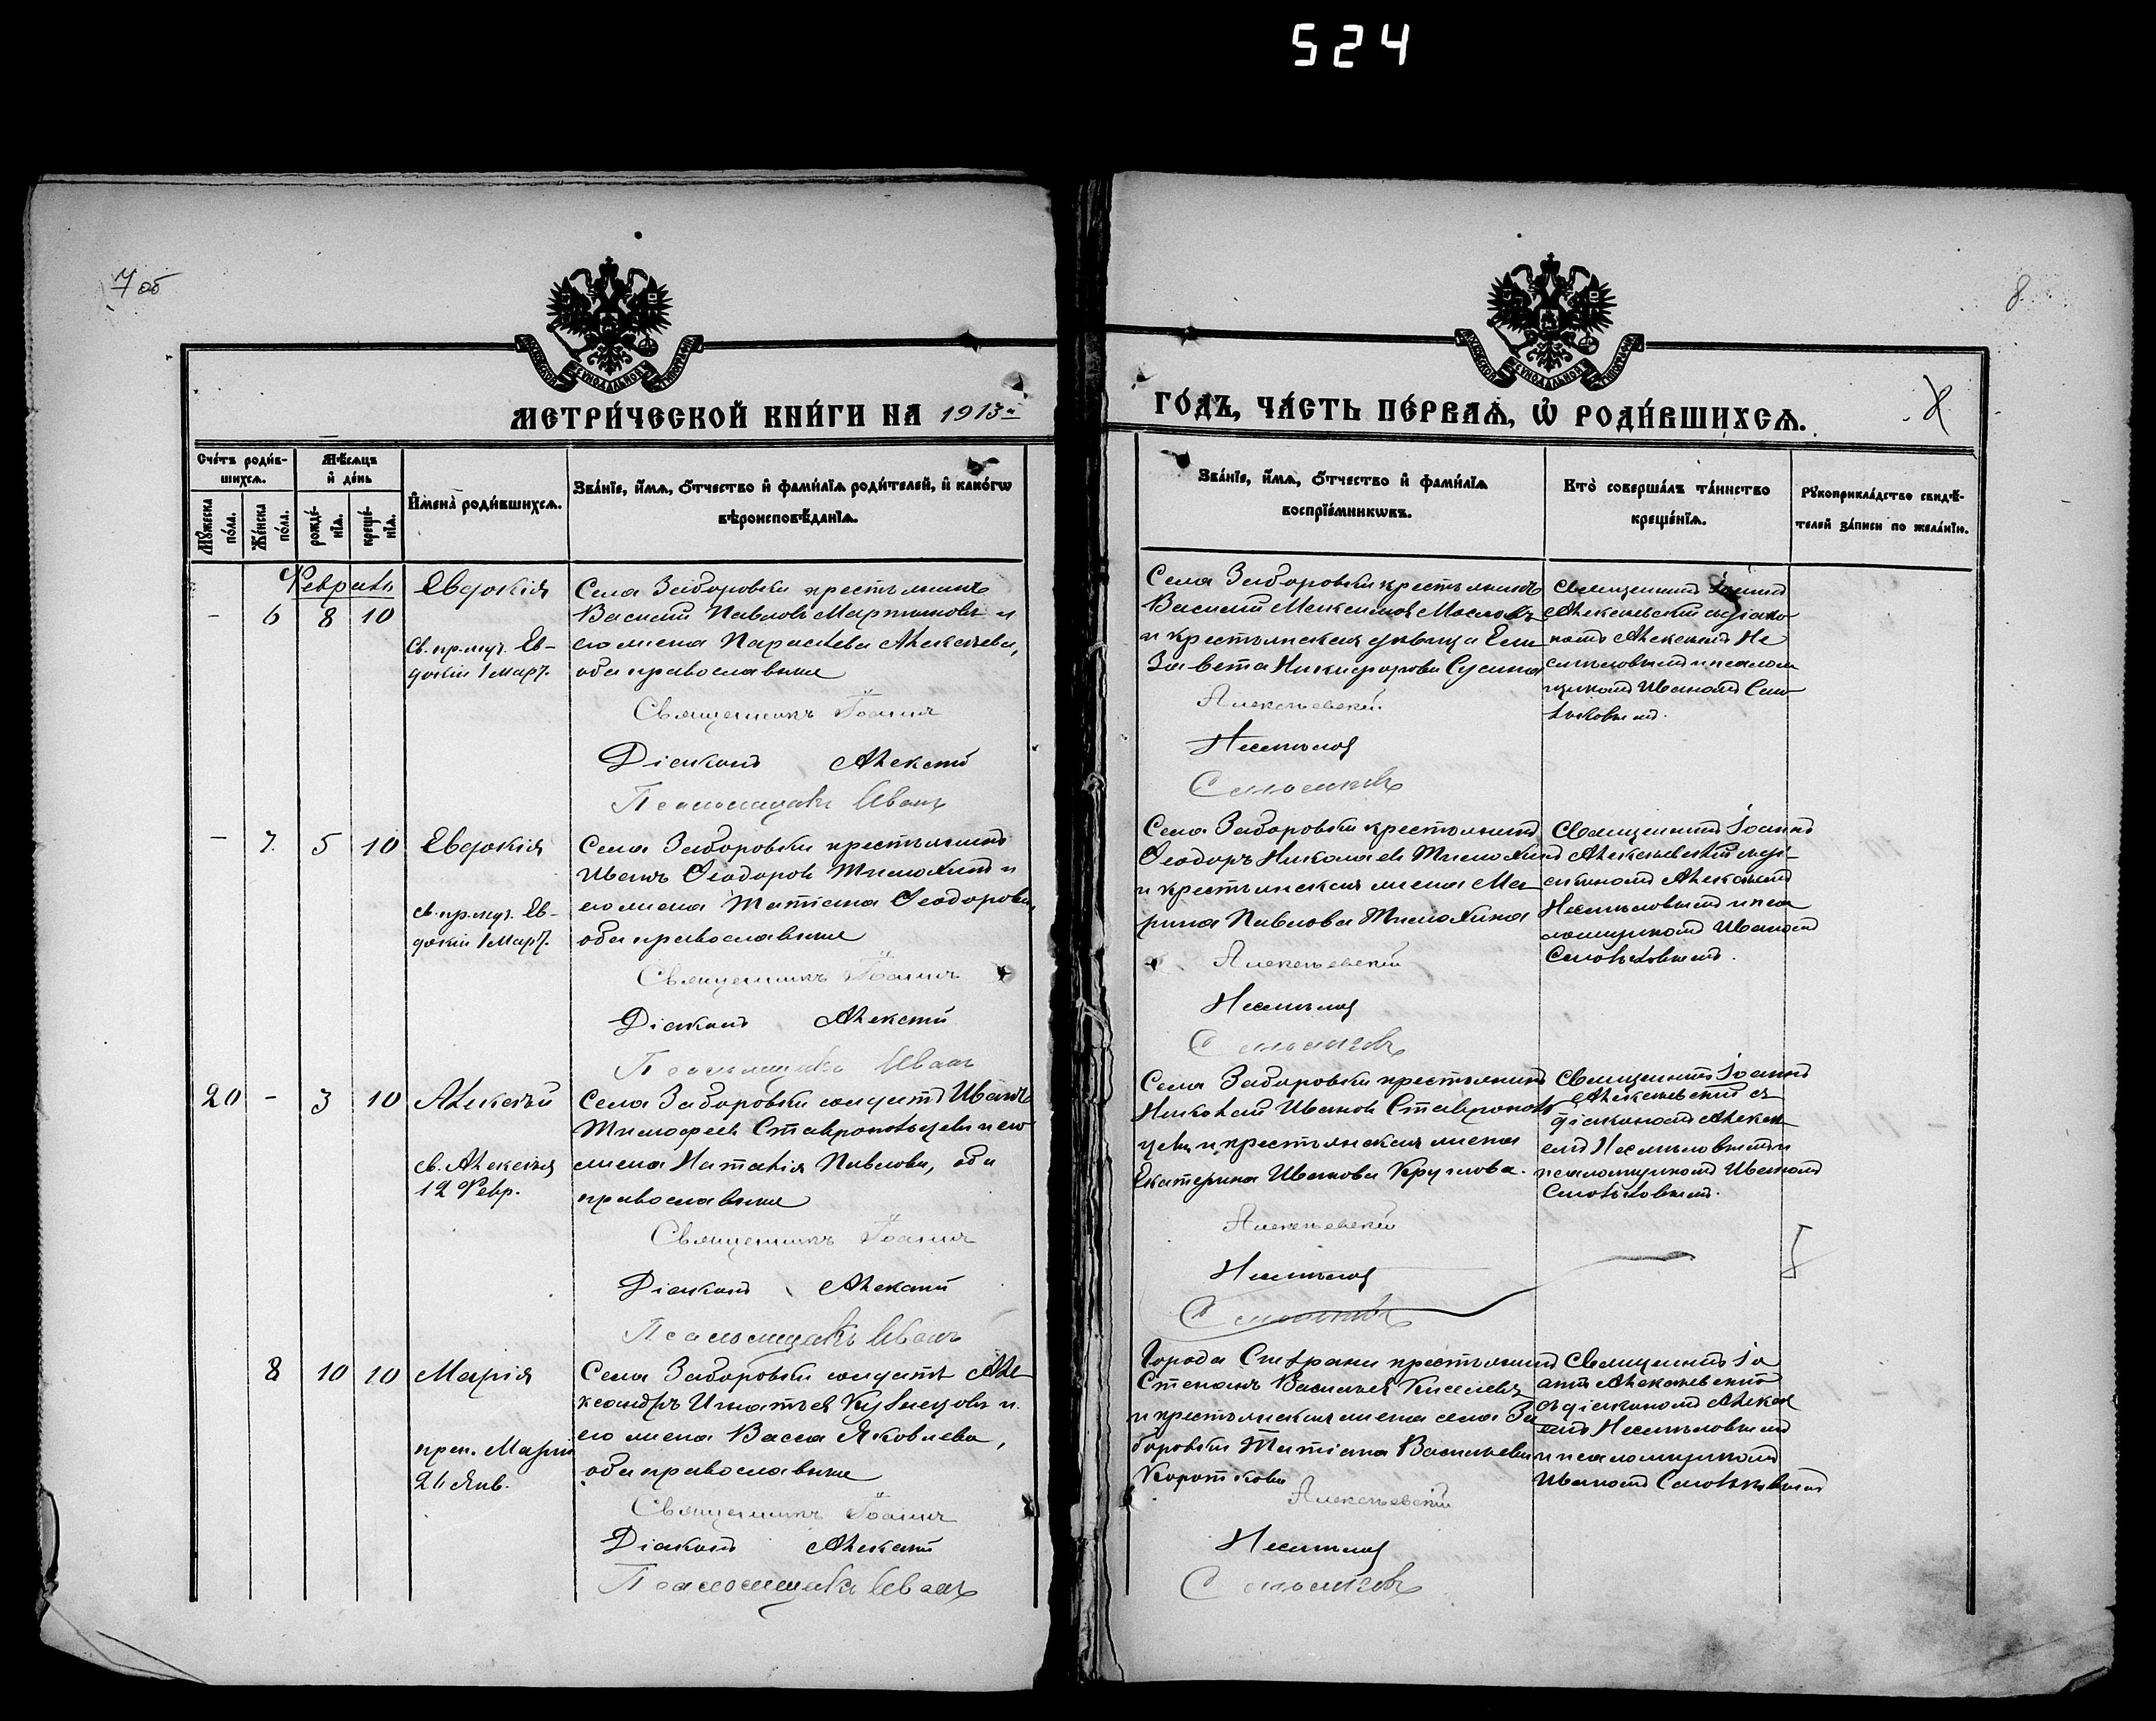 524
7 об
8
МЕТРИ́ЧЕСКОЙ КНИ́ГИ НА 1913 й
ГО́ДЪ, ЧА́СТЬ ПЕ́РВАѦ, Ѿ РОДИ́ВШИХСѦ.
Сче́тъ роди́в-
шихсѧ.
Мѣ́сѧцъ
и҆ де́нь
Мꙋ́жеска
по́ла.
Же́нска
по́ла.
рожде́-
нїѧ.
креще́-
нїѧ.
И҆мена̀ роди́вшихсѧ.
Зва́нїе, и҆́мѧ, ѻ҆́тчество и҆ фами́лїѧ роди́телей, и҆ како́гѡ
вѣроисповѣ́данїѧ.
Зва́нїе, и҆́мѧ, ѻ҆́тчество и҆ фами́лїѧ
воспрїе́мникѡвъ.
Кто̀ соверша́лъ та́инство
креще́нїѧ.
Рꙋкоприкла́дство свидѣ́-
телей за́писи по жела́нїю.
Февраль
- 6 8 10
Евдокія
Св. пр. муч. Ев-
докіи 1 март.
Села Заборовки крестьянинъ
Василий Павловъ Мартыновъ и
его жена Параскева Алексѣева,
оба православные
Священникъ Іоаннъ
Діаконъ Алексѣй
Псаломщикъ Иванъ
Села Заборовки крестьянинъ
Василий Максимовъ Масловъ
и крестьянская дѣвица Ели
завета Никифорова Сусина
Алексѣевскій
Несмѣлов
Смольковъ
Священникъ Іоаннъ
Алексѣевскій съ діако
номъ Алексѣемъ Не
смѣловымъ и псалом
щикомъ Иваномъ Смо
льковымъ.
- 7. 5 10
Евдокія
св. пр. муч. Ев-
докіи 1 март.
Села Заборовки крестьянинъ
Иванъ Ѳеодоровъ Тимохинъ и
его жена Татіана Ѳеодорова,
оба православные
Священникъ Іоаннъ
Діаконъ Алексѣй
Псаломщикъ Иванъ
Села Заборовки крестьянинъ
Ѳеодоръ Николаевъ Тимохинъ
и крестьянская жена Ма-
рина Павлова Тимохина
Алексѣевскій
Несмѣлов
Смольковъ
Священникъ Іоаннъ
Алексѣевскій съ ді-
акономъ Алексѣемъ
Несмѣловымъ и пса
ломщикомъ Иваномъ
Смольковымъ.
20 - 3 10
Алексѣй
св. Алексѣя
12 Февр.
Села Заборовки солдатъ Иванъ
Тимофеевъ Ставропольцевъ и его
жена Наталія Павлова, оба
православные
Священникъ Іоаннъ
Діаконъ Алексѣй
Псаломщикъ Иванъ
Села Заборовки крестьянинъ
Николай Ивановъ Ставрополь
цевъ и крестьянская жена
Екатерина Иванова Круглова.
Алексѣевскій
Несмѣлов
Смольковъ
Священникъ Іоаннъ
Алексѣевскій съ
діакономъ Алексѣ
емъ Несмѣловымъ и
псаломщикомъ Иваномъ
Смольковымъ.
8 10 10
Марія
преп. Маріи
26 Янв.
Села Заборовки солдатъ Але
ксандръ Игнатьев Кузнецовъ и
его жена Васса Яковлева,
оба православные
Священникъ Іоаннъ
Діаконъ Алексѣй
Псаломщикъ Иванъ
Города Сызрани крестьянинъ
Степанъ Васильев Киселевъ
и крестьянская жена села За
боровки Татіана Васильева
Короткова
Алексѣевскій
Несмѣлов
Смольковъ
Священникъ Іо
аннъ Алексѣевскій
съ діакономъ Алексѣ
емъ Несмѣловымъ
и псаломщикомъ
Иваномъ Смольковымъ